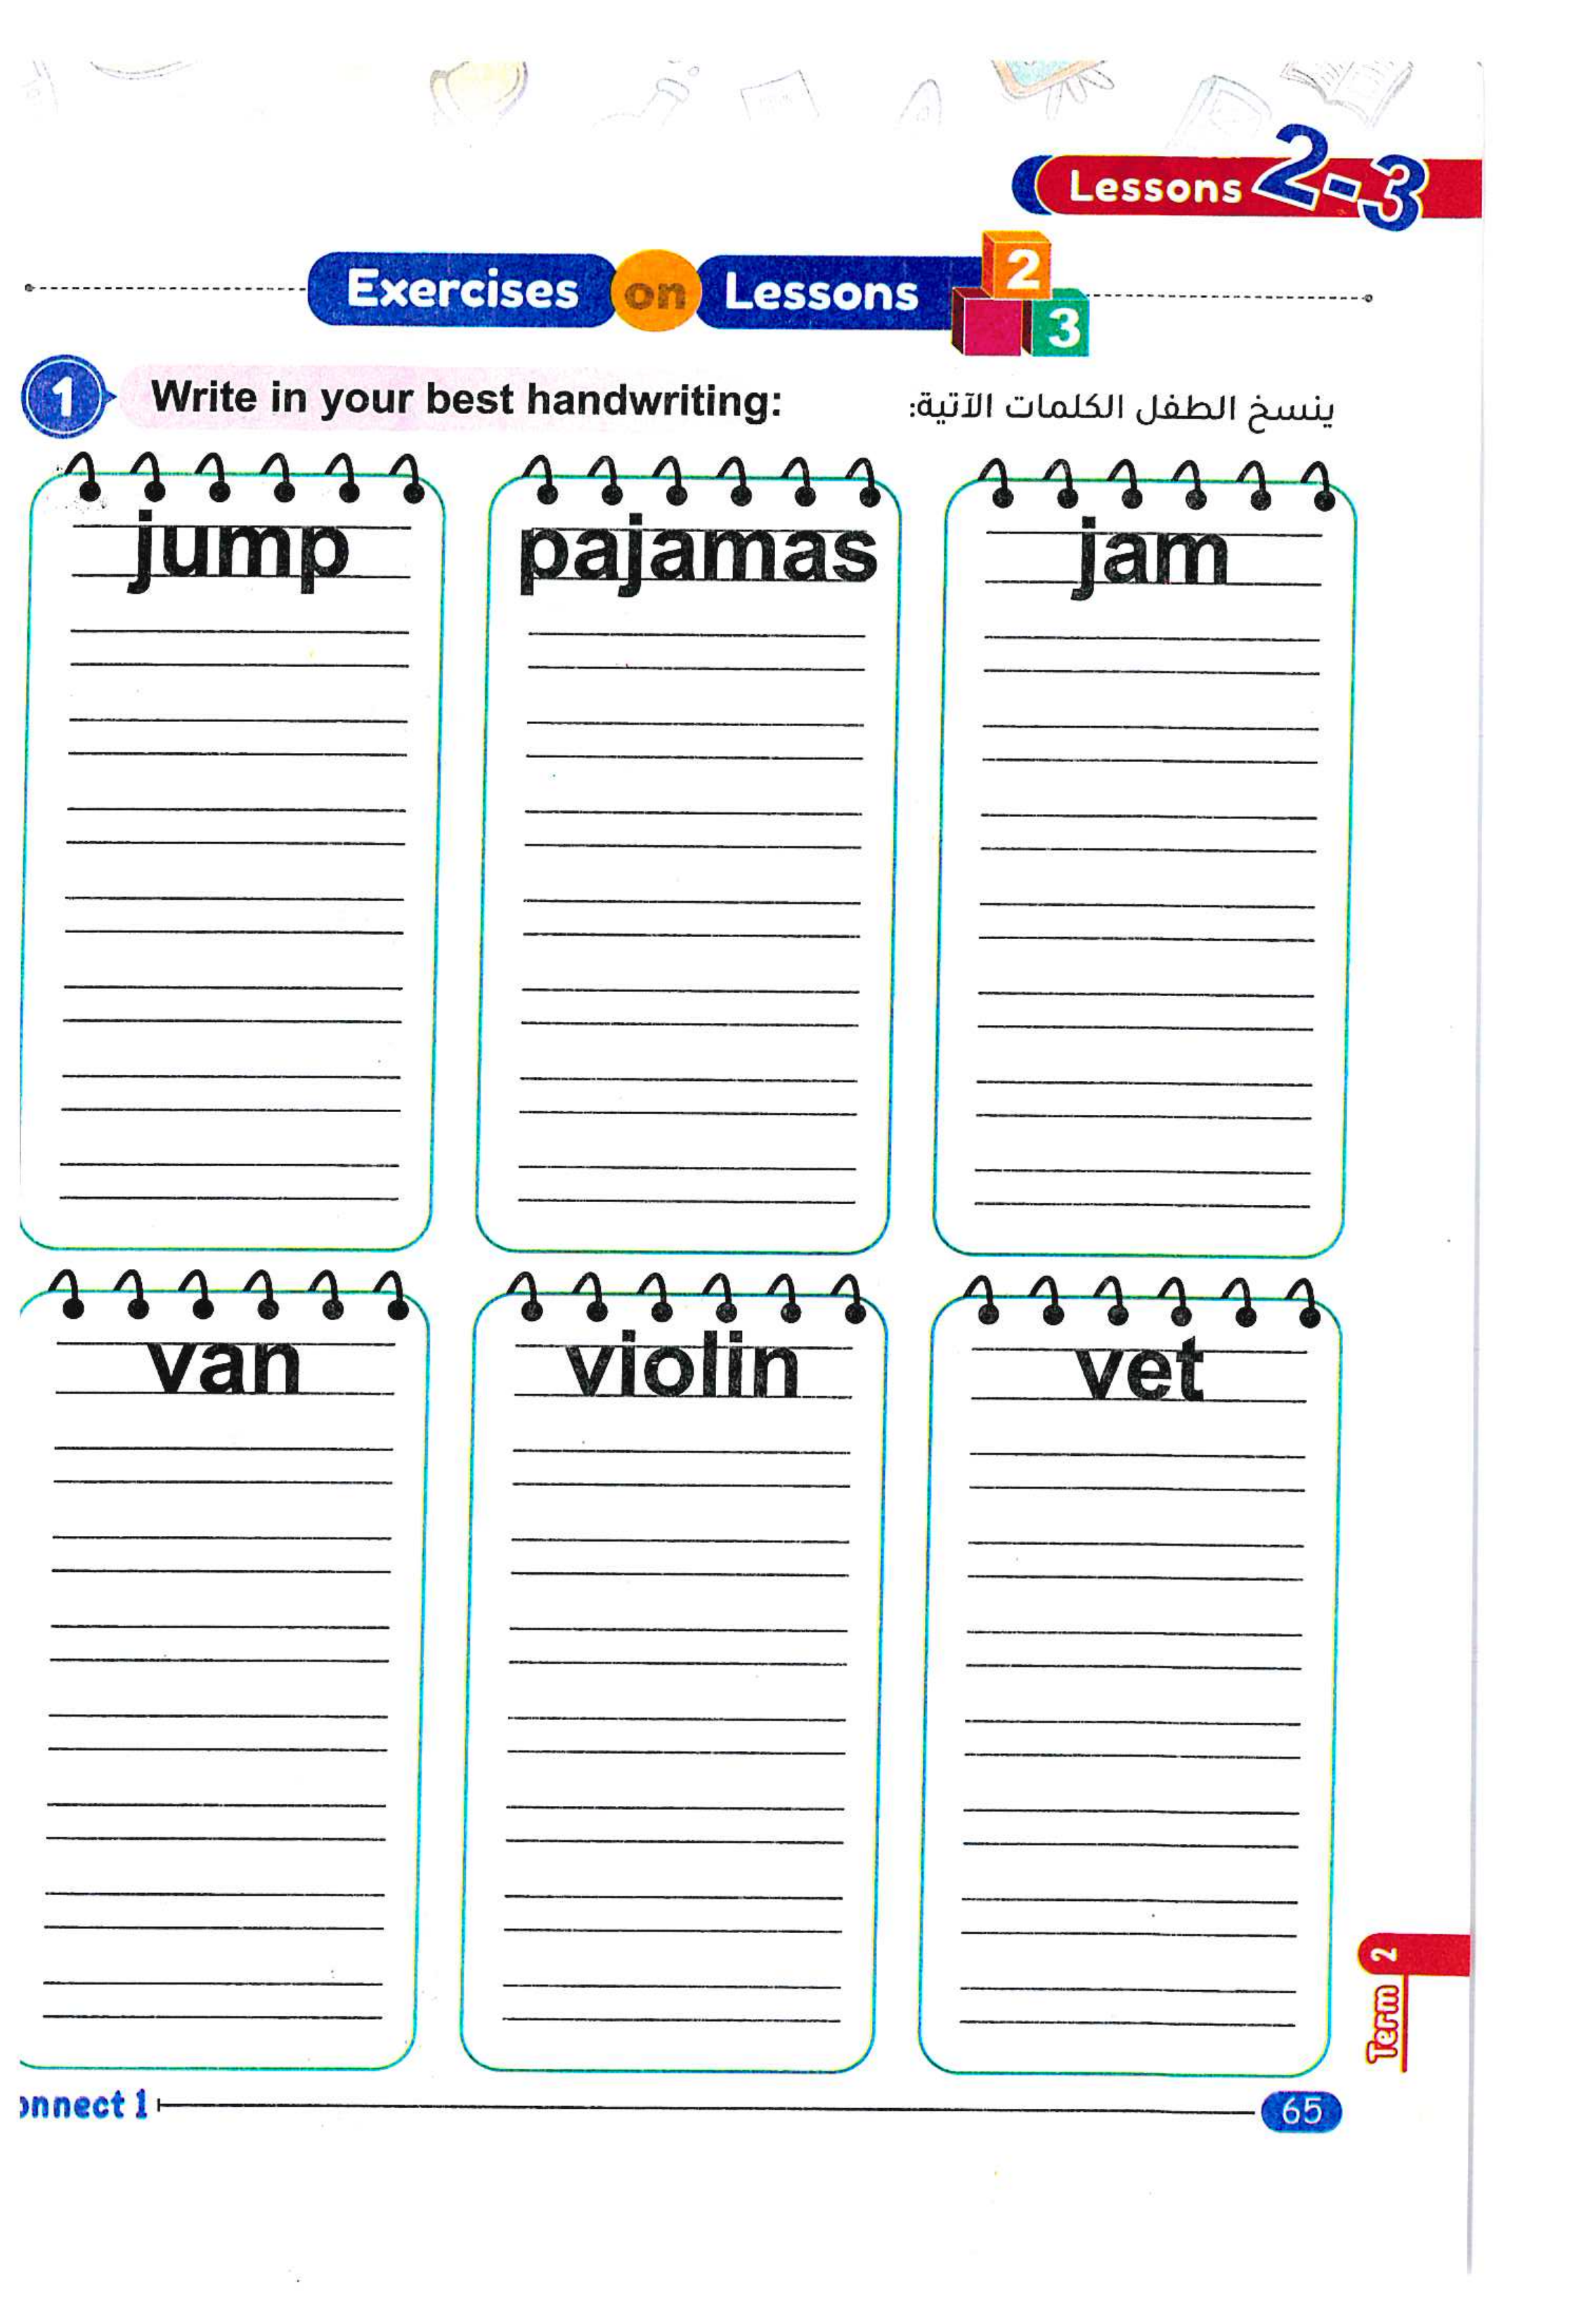 Lessons 2-3
Exercises on Lessons 2 3
1 Write in your best handwriting: ينسخ الطفل الكلمات الآتية:
jump pajamas jam
van violin vet
Term 2
onnect 1 65